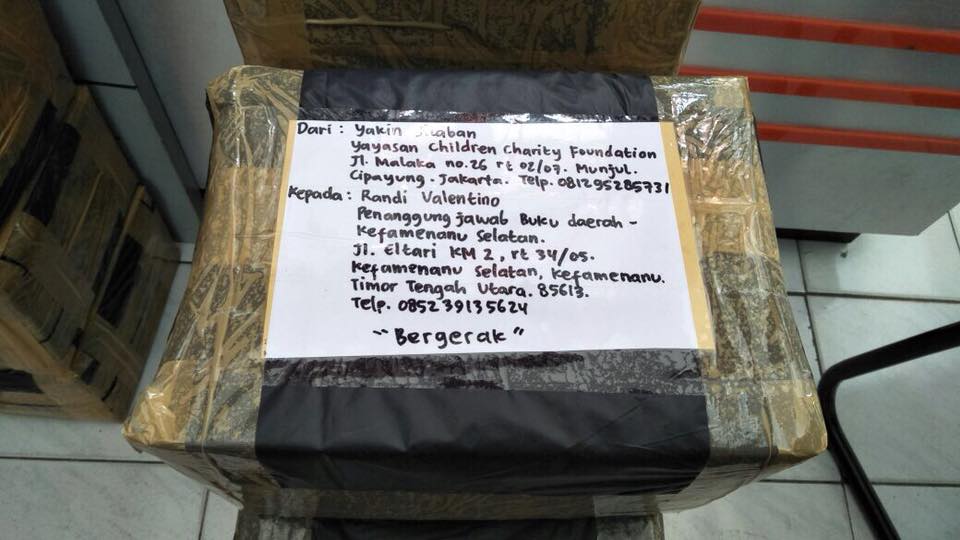 Dari : Yakin
Yayasan Children Charity Foundation
Jl. Malaka no.26 rt 02/07. Munjul.
Cipayung. Jakarta. Telp. 081295285731
Kepada : Randi Valentino
Penanggung jawab Buku daerah -
Kefamenanu Selatan.
Jl. Eltari KM 2, rt 34/05.
Kefamenanu Selatan, Kefamenanu.
Timor Tengah Utara. 85613.
Telp. 085239135624
"Bergerak"